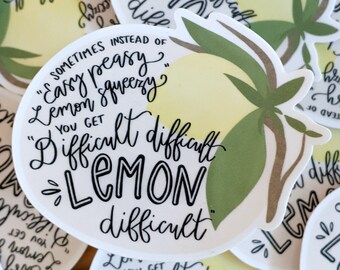 SOMETIMES INSTEAD OF
"Easy peasy
Lemon squeezy"
YOU GET
"Difficult difficult
LEMON
difficult"